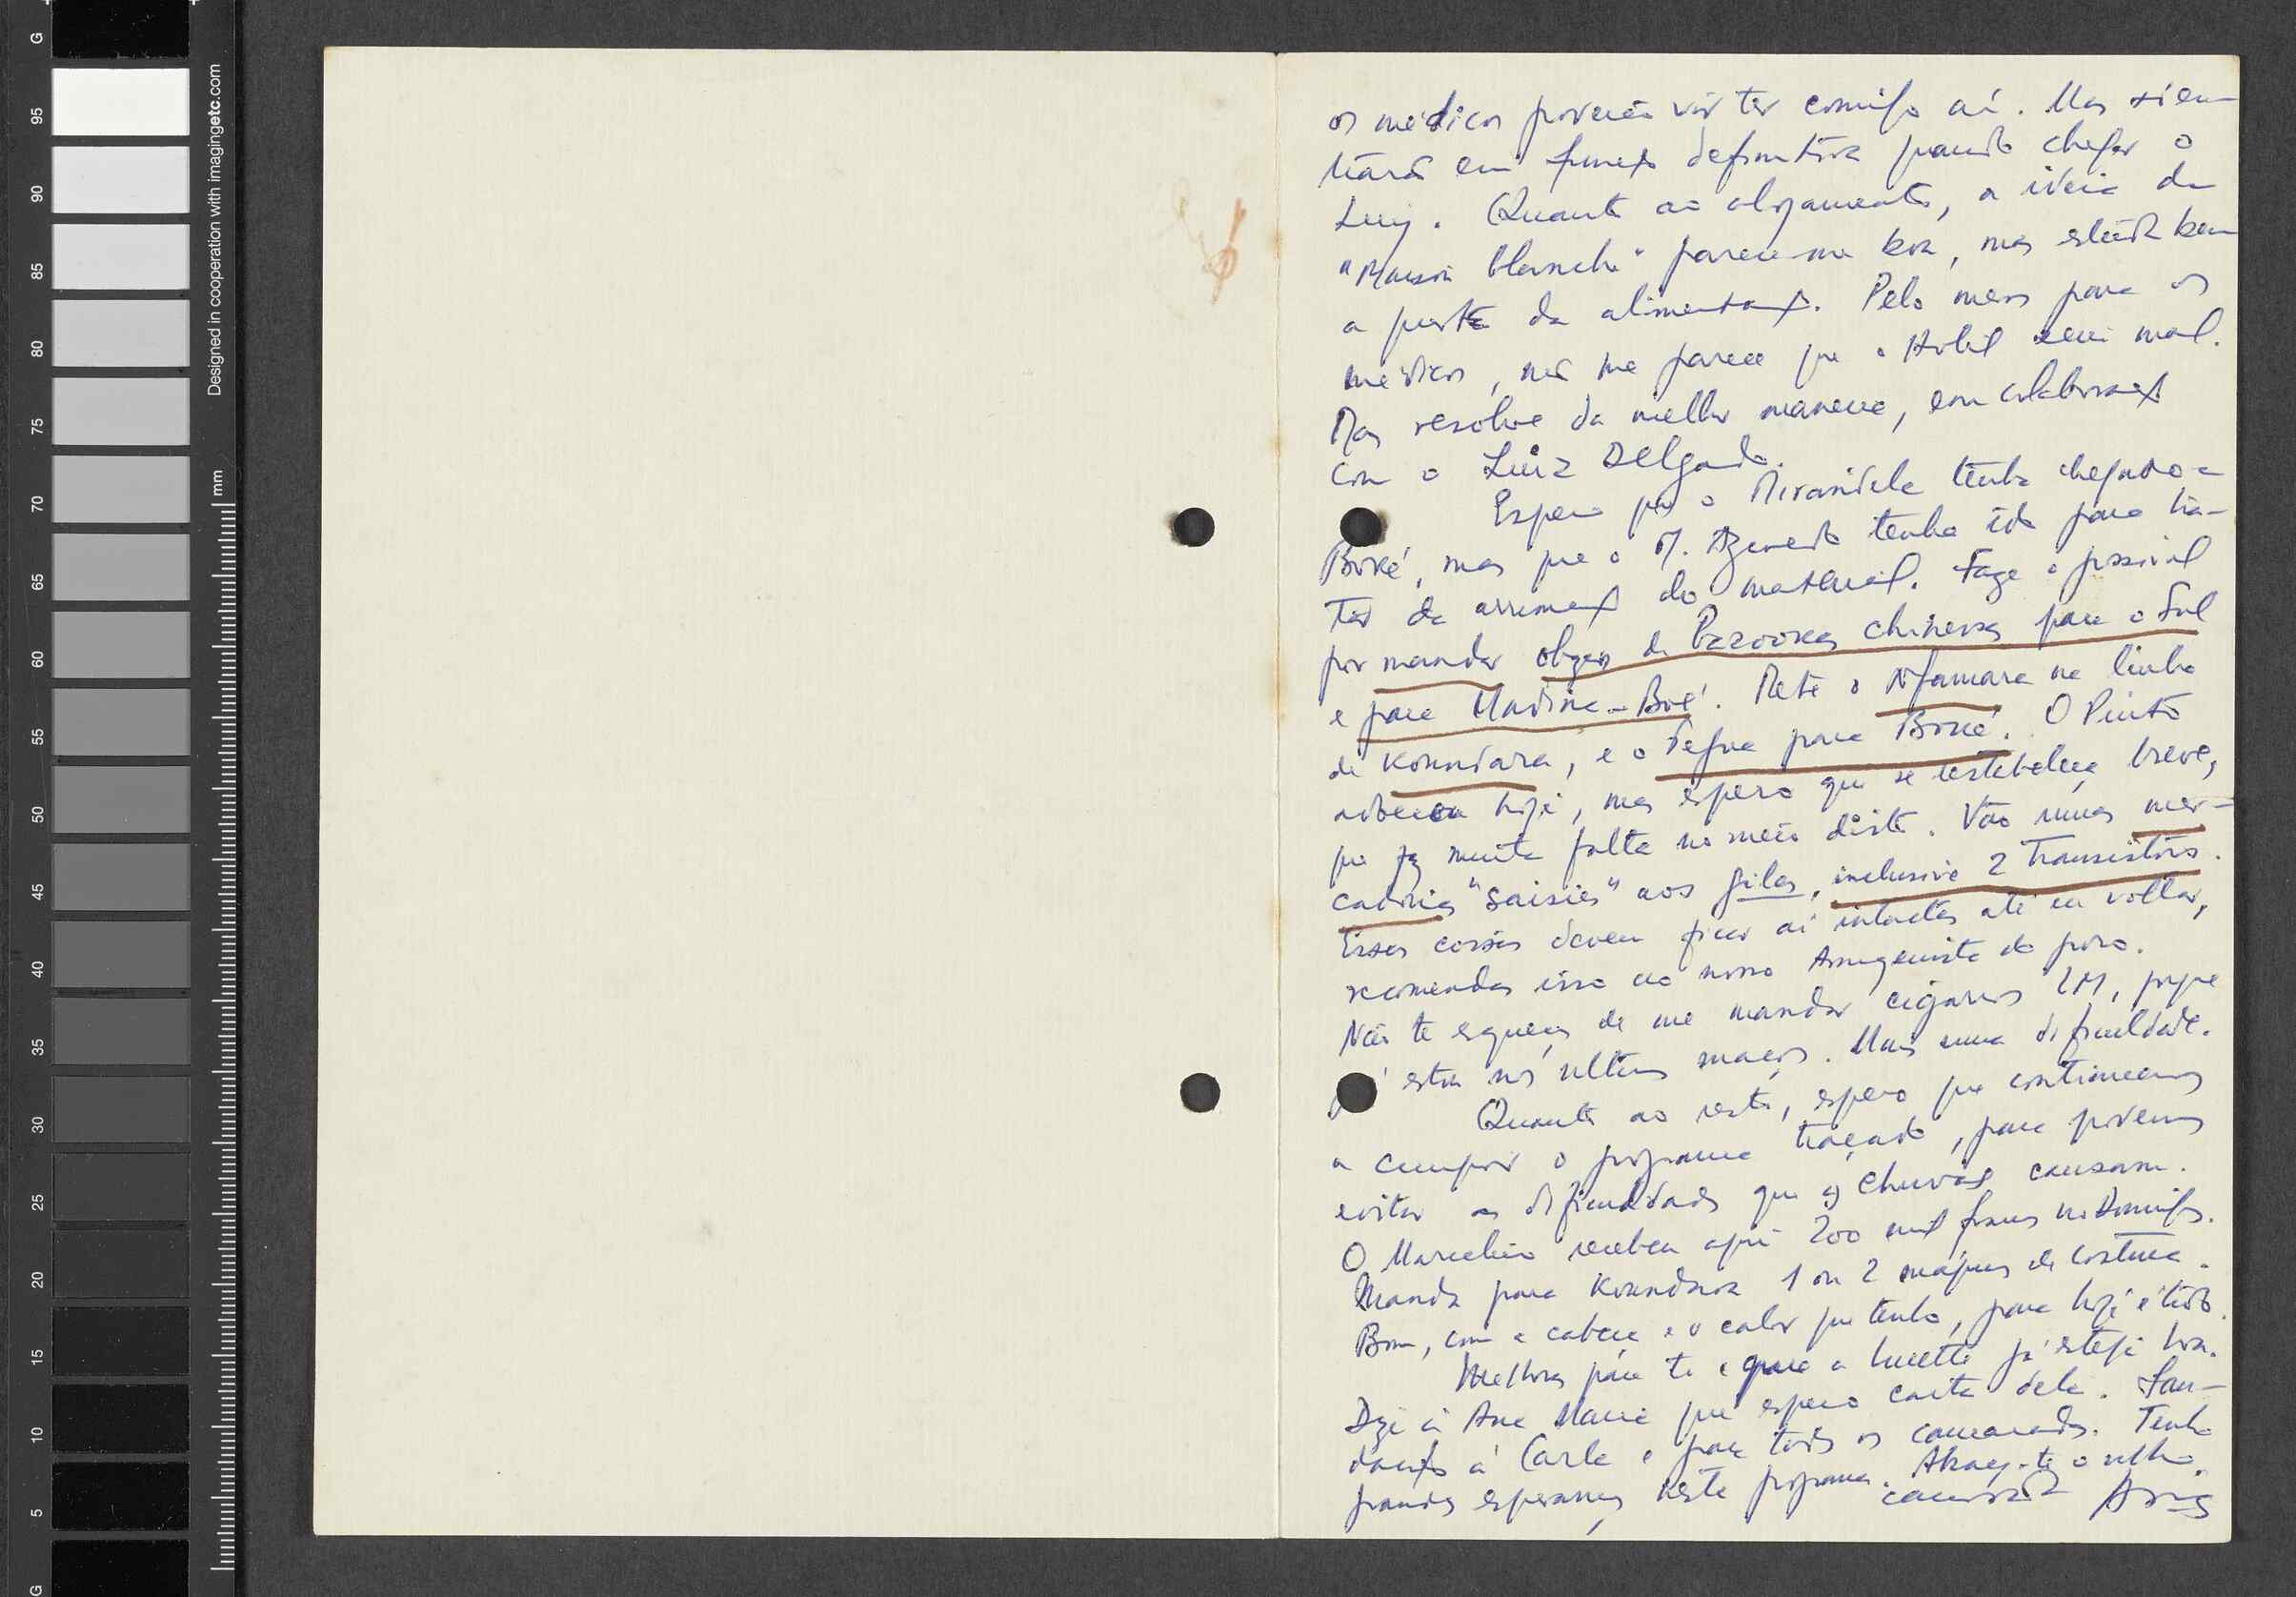 os médicos poderão vir ter comigo aí. Mas orien-
tará em função definitiva quando chegar o
Luiz. Quanto ao alojamento, a ideia da
"Maison blanche" parece-me boa, mas estuda bem
a questão da alimentação. Pelo menos para os
médicos, não me parece que o Hotel seria mal.
Mas resolve da melhor maneira, em colaboração
com o Luiz Delgado.
Espero que o Mirandela tenha chegado a
Boké, mas que o M. Azevedo tenha ido para tra-
tar da arrumação do material. Faze o possível
por mandar obuses de Bazookas chinesas para o Sul
e para Madina-Boé. Mete o N'famara na linha
de Koundara, e o Degue para Boké. O Pinto
adoeceu hoje, mas espero que se restabeleça breve,
que faz muita falta no meio disto. Vão umas mer-
cadorias "saisies" aos gilas, inclusivé 2 Transistors.
Essas coisas devem ficar aí intactas até eu voltar,
recomenda isso ao nosso do povo.
Não te esqueças de me mandar cigarros LM, porque
já estou nos últimos maços. Mais uma dificuldade.
Quanto ao resto, espero que continuemos
a cumprir o programa traçado, para podermos
evitar as dificuldades que as chuvas causam.
O Marcelino recebeu aqui 200 mil francos no Domingo.
Manda para Koundara 1 ou 2 máquinas de costura.
Bom, com a cabeça e o calor que tenho, para hoje é tudo.
Melhoras para ti e que a Lucette já esteja boa.
Dize à Ana Maria que espero carta dela. Sau-
dações à Carla e para todos os camaradas. Tenho
grandes esperanças neste programa. Abraça-te o velho
camarada
Designed in cooperation with imagingetc.com
mm
G
95
90
85
80
75
70
65
60
55
50
45
40
35
30
25
20
15
10
5
G